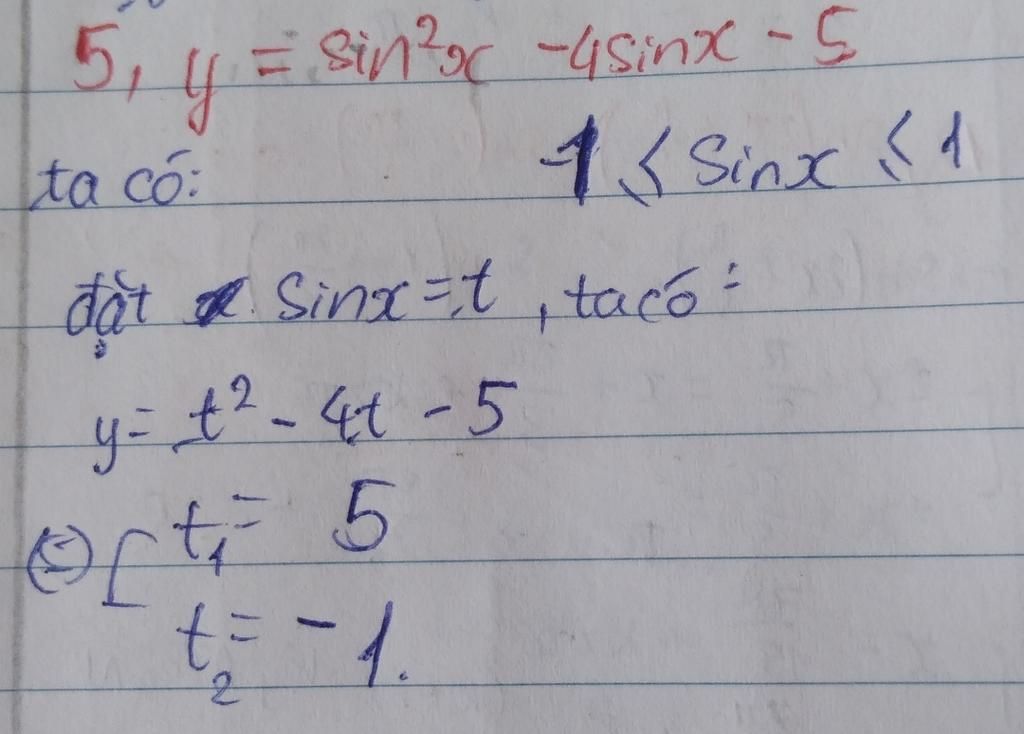 5, y = sin²x - 4sinx - 5
ta có: -1 ≤ sinx ≤ 1
đặt sinx = t, ta có:
y = t² - 4t - 5
(=) [ t₁ = 5
t₂ = -1.